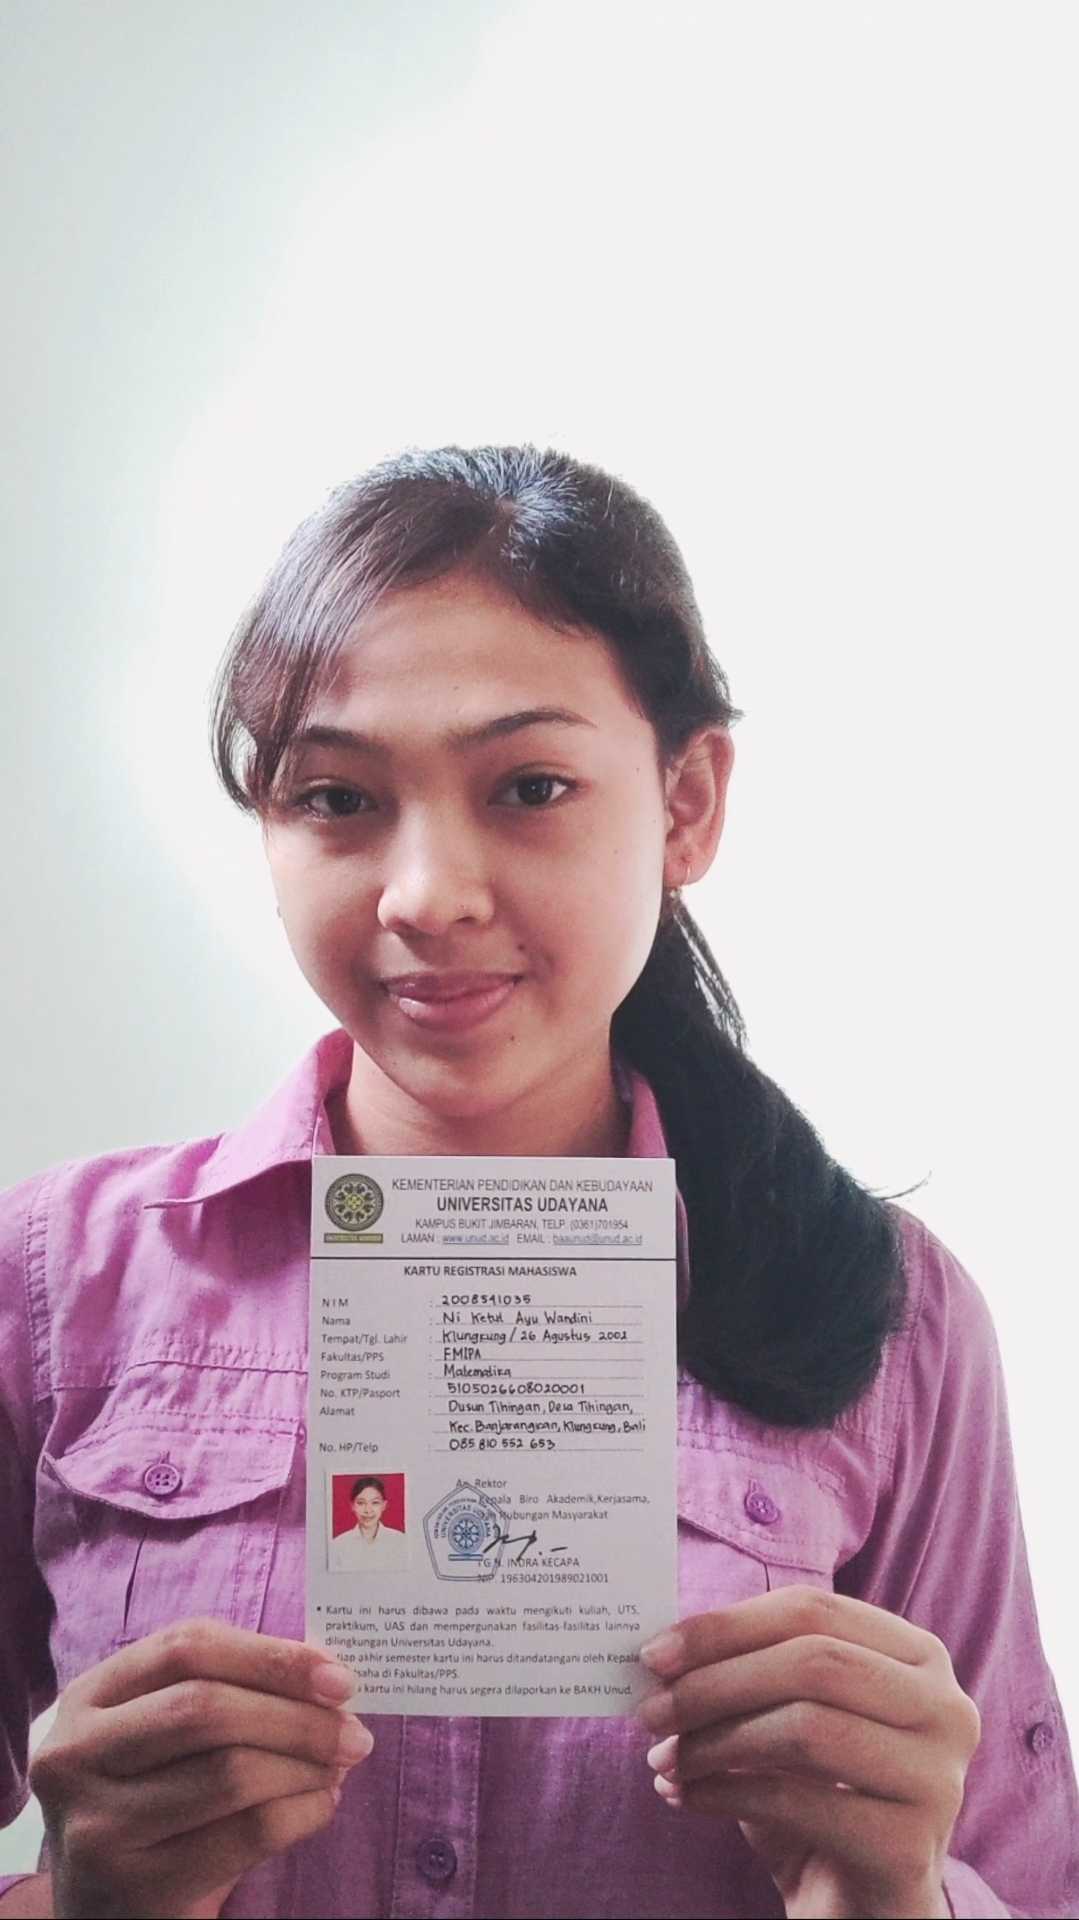 KEMENTERIAN PENDIDIKAN DAN KEBUDAYAAN
UNIVERSITAS UDAYANA
KAMPUS BUKIT JIMBARAN, TELP. (0361)701954
LAMAN : www.unud.ac.id EMAIL : baaunud@unud.ac.id
UNIVERSITAS UDAYANA
KARTU REGISTRASI MAHASISWA
NIM : 2008541035
Nama : Ni Ketut Ayu Wandini
Tempat/Tgl. Lahir : Klungkung / 26 Agustus 2002
Fakultas/PPS : FMIPA
Program Studi : Matematika
No. KTP/Pasport : 5105026608020001
Alamat : Dusun Tihingan, Desa Tihingan,
Kec. Banjarangkan, Klungkung, Bali
No. HP/Telp : 085 810 552 653
An. Rektor
Kepala Biro Akademik,Kerjasama,
dan Hubungan Masyarakat
UNIVERSITAS UDAYANA
I G.N. INDRA KECAPA
NIP. 196304201989021001
• Kartu ini harus dibawa pada waktu mengikuti kuliah, UTS,
praktikum, UAS dan mempergunakan fasilitas-fasilitas lainnya
dilingkungan Universitas Udayana.
tiap akhir semester kartu ini harus ditandatangani oleh Kepala
saha di Fakultas/PPS.
kartu ini hilang harus segera dilaporkan ke BAKH Unud.